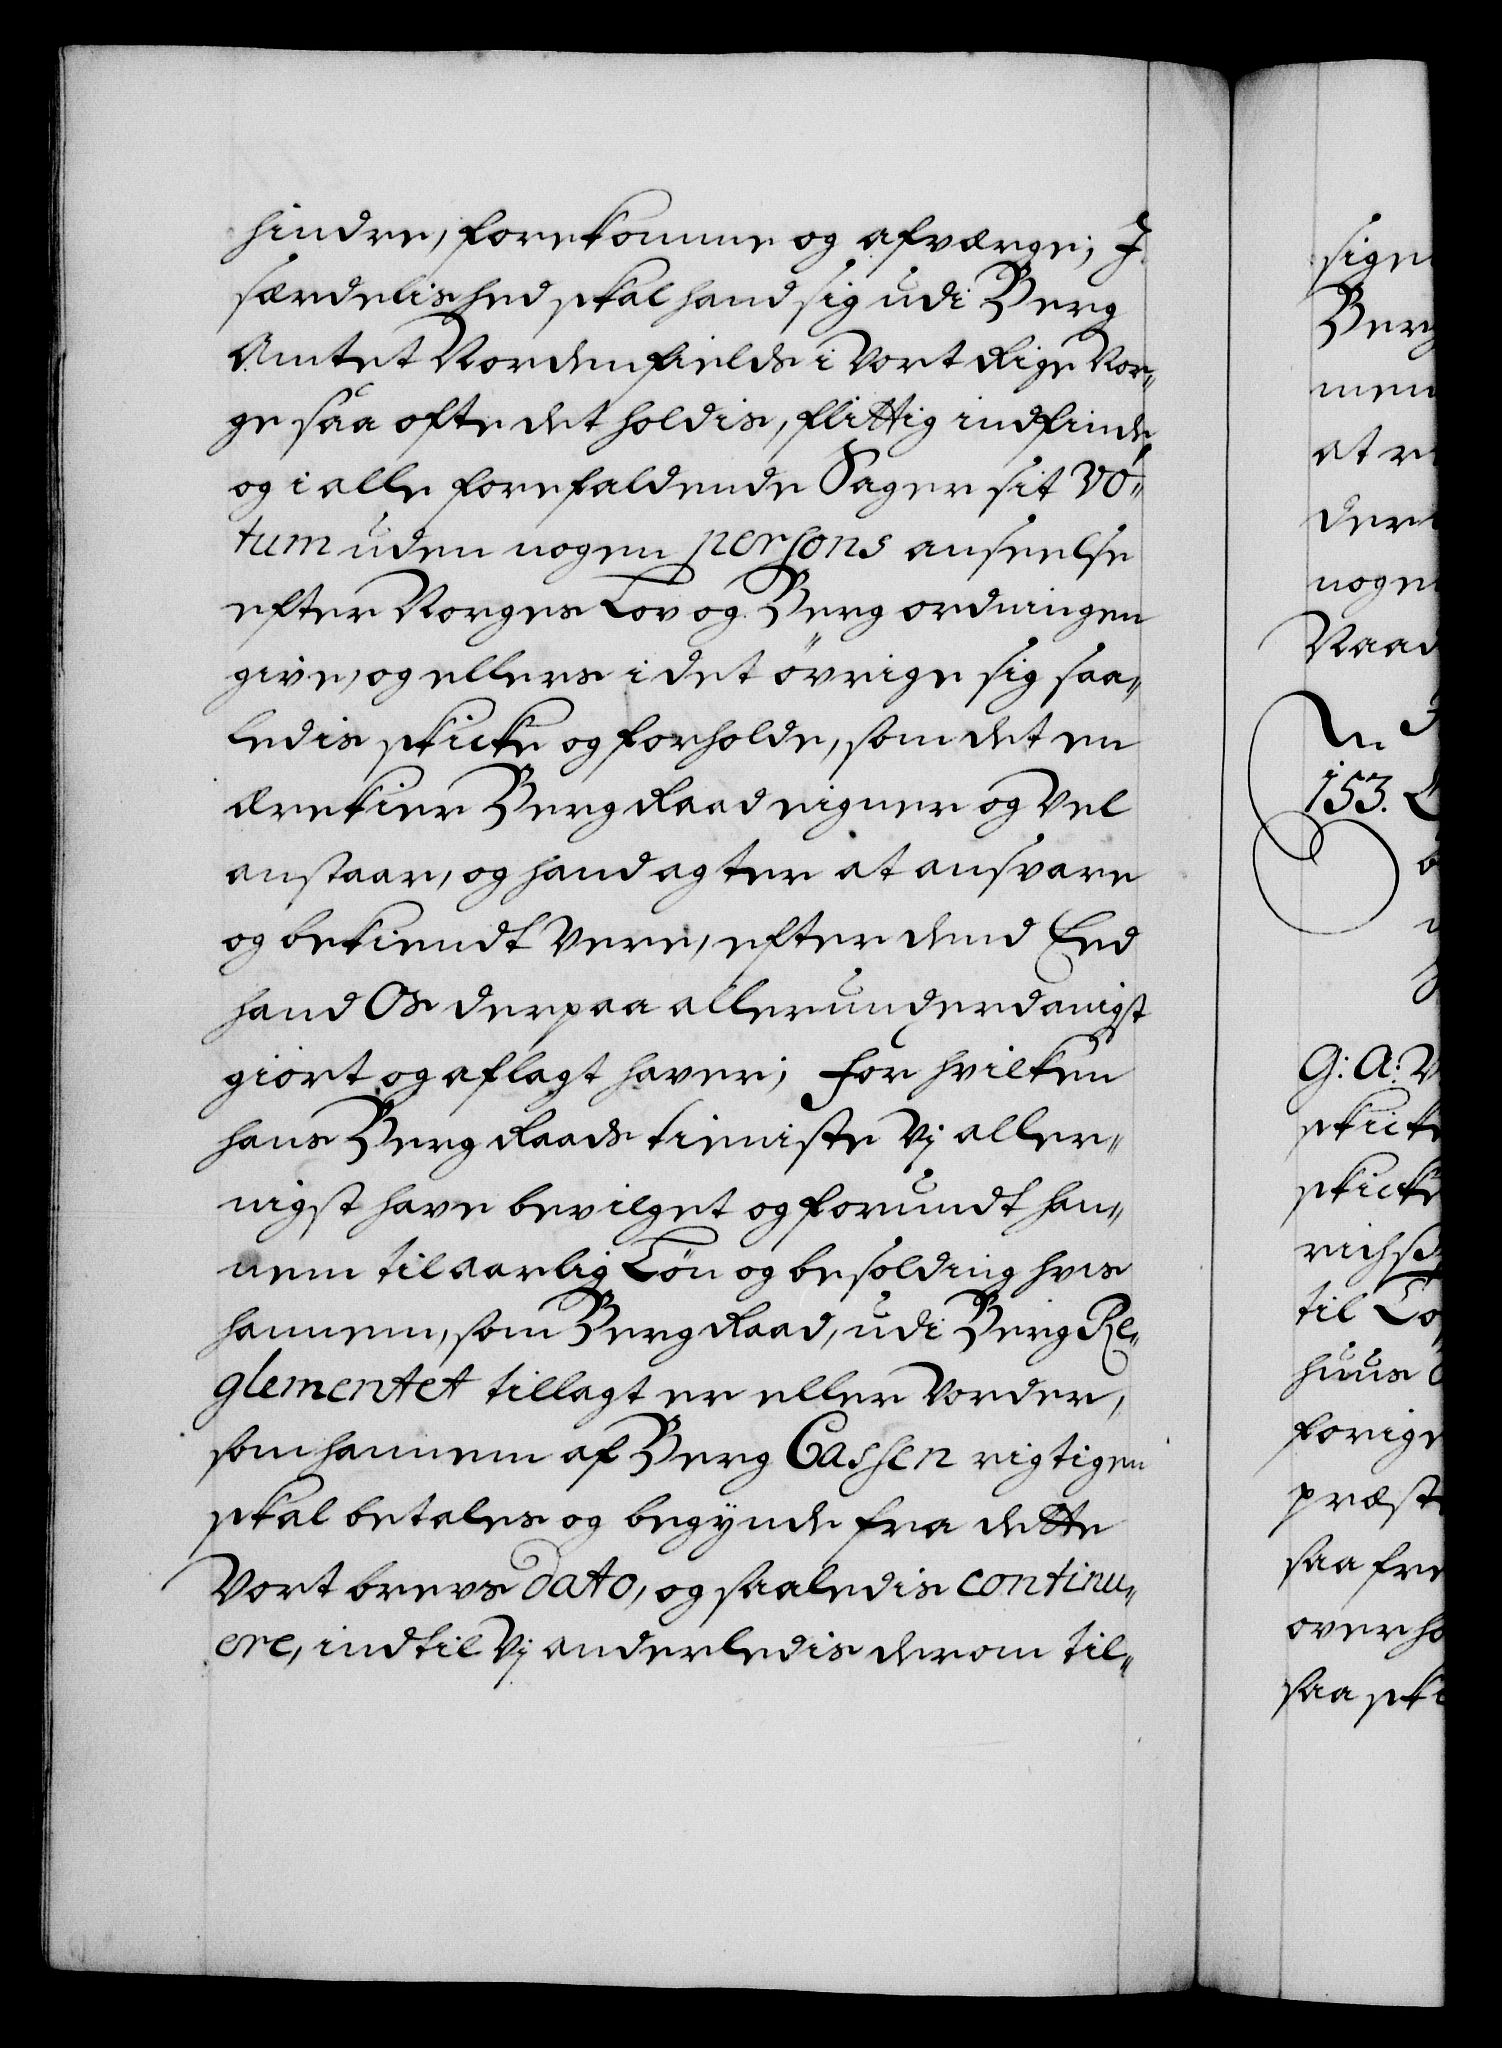 hindre, forekomme og afværge; J
særdelished skal hand sig udi Berg
Amtet Nordenfields i Vort Rige Nor-
ge saa ofte det holdis, flittig indfinde,
og i alle forefaldende Sager sit Vo-
tum uden nogen persons anseelse
efter Norges Lov og Berg ordningen
give, og ellers i det övrige sig saa-
ledis skicke og forholde, som det en
ærekier Berg Raad eigner og vel
anstaar, og hand agter at ansvare
og bekiendt vere, efter dend Eed
hand Os derpaa allerunderdanigst
giort og aflagt haver; for hvilken
hans Berg Raads tieniste Vj aller-
nigst have bevilget og forundt han-
nem til aarlig Lön og besolding hvis
hannem, som Berg Raad, udi Berg Re-
glementet tillagt er eller vorder,
som hannem af Berg Cassen rigtigen
skal betales og begynde fra dette
Vort brevs dato, og saaledis continu-
ere, indtil Vj anderledis derom til-
sige
Berg
men
at
der
nogen
Naad
153.
G: A:
skicke
skicke
til
huus
forige
præst
saa fre
over
saa ski